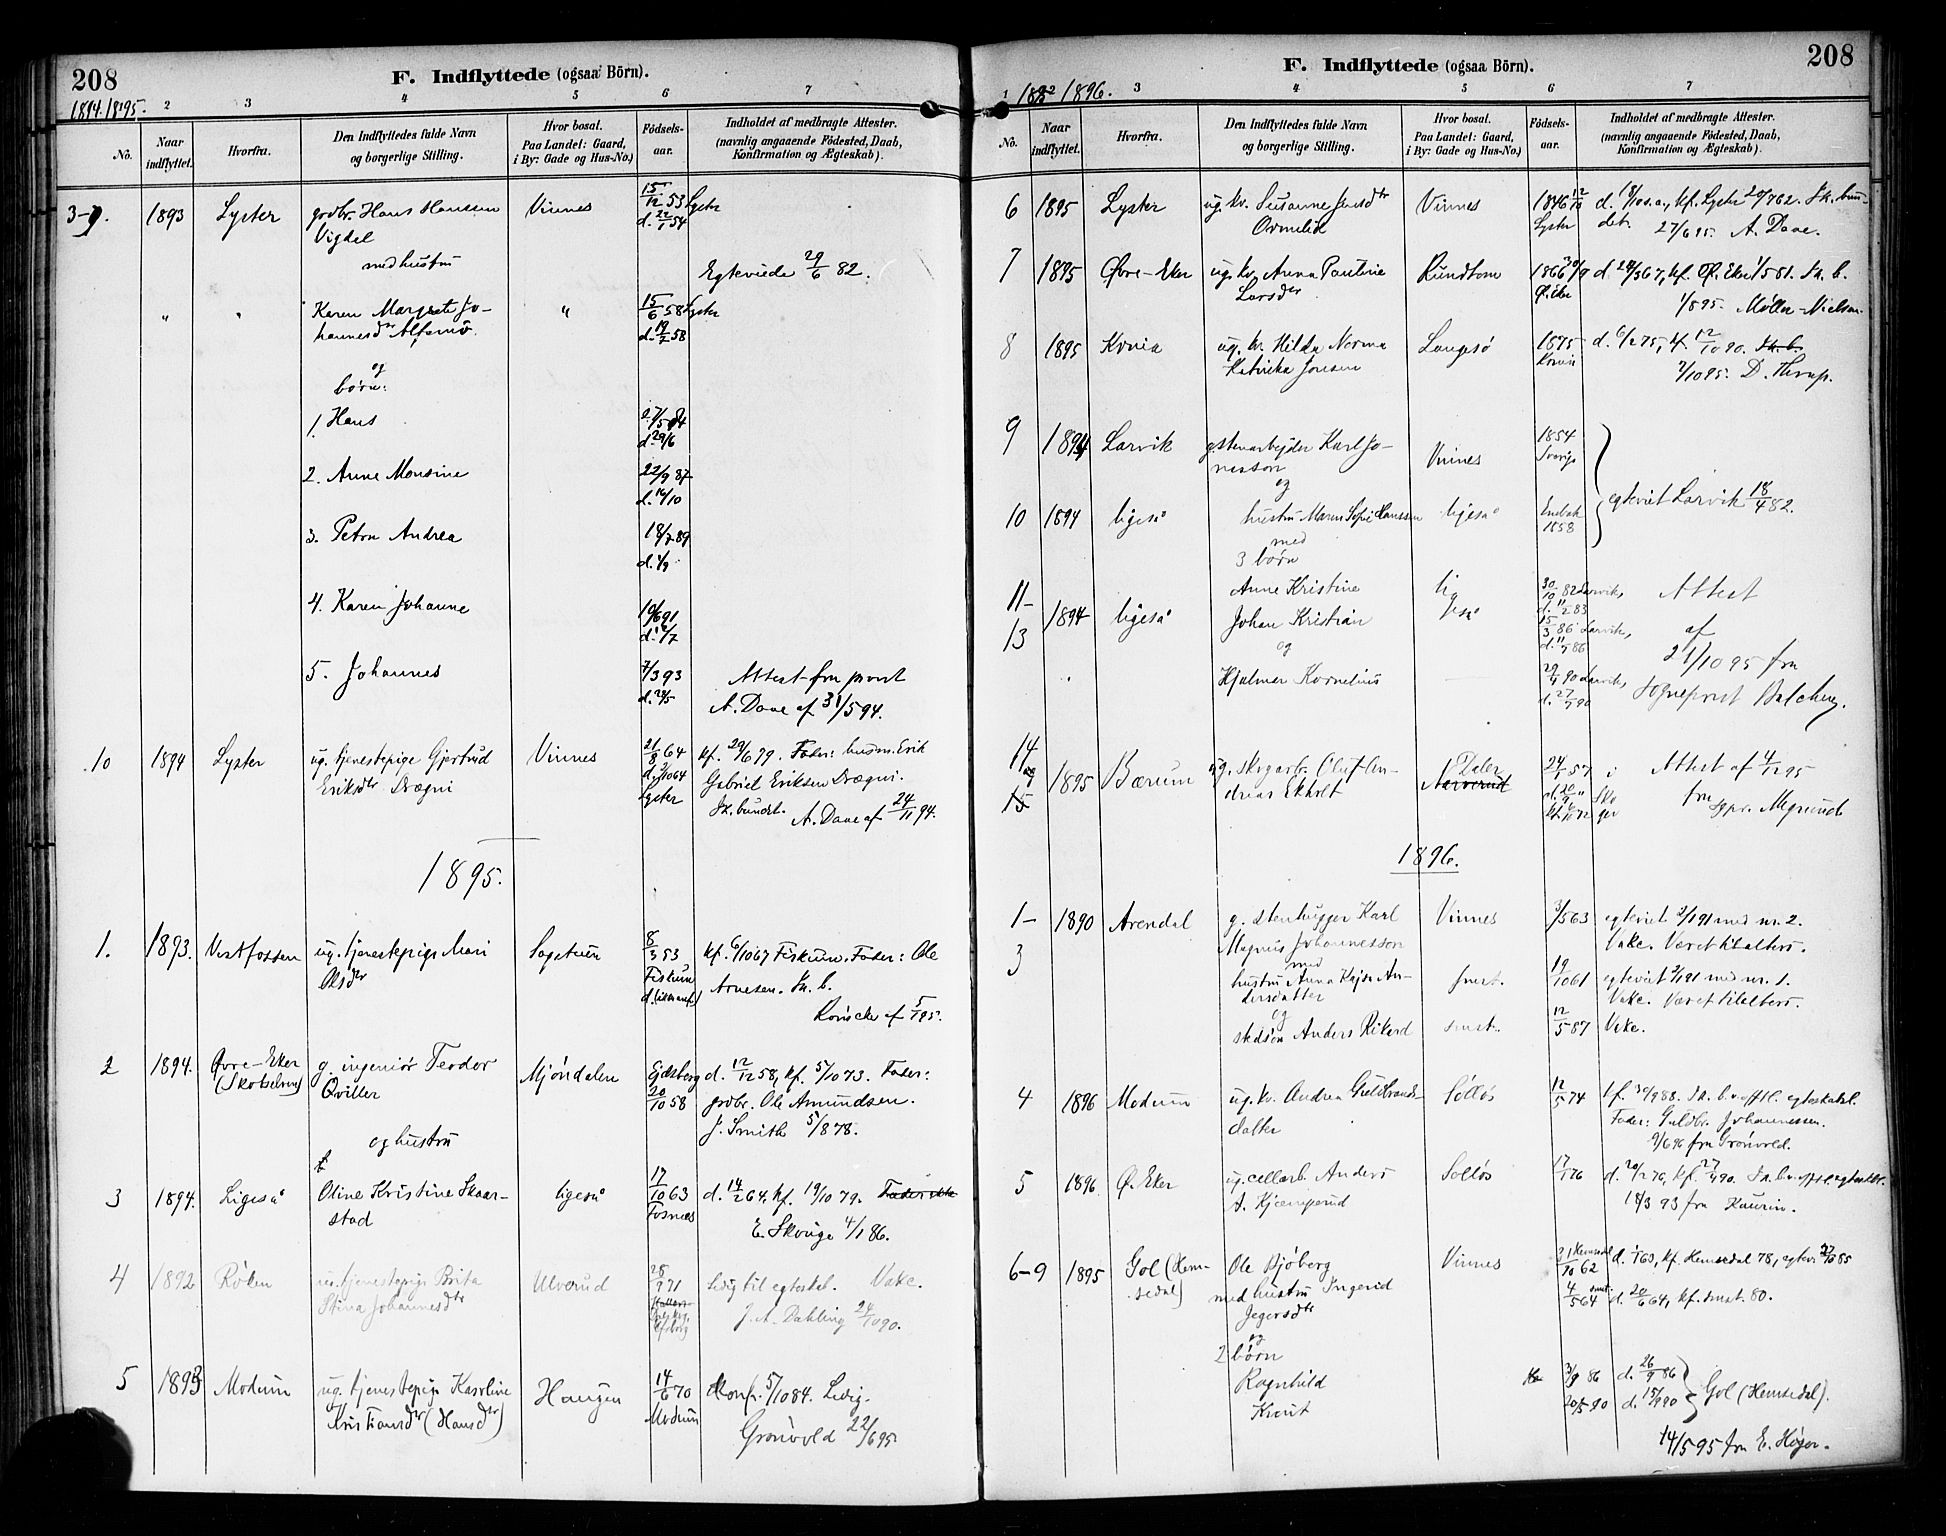 208
F. Indflyttede (ogsaa Börn).
1894. 1895.
2 3 4 5 6 7
No.
Naar indflyttet.
Hvorfra.
Den Indflyttedes fulde Navn og borgerlige Stilling.
Hvor bosat. Paa Landet: Gaard, i By: Gade og Hus-No.)
Födselsaar.
Indholdet af medbragte Attester. (navnlig angaaende Födested, Daab, Konfirmation og Ægteskab).
3-9. 1893 Lyster grdbr. Hans Hansen Vinnes 15/12 53 Lyster
Vigdal d. 22/1 54
med hustru
Egteviede 29/6 82.
" " Karen Margrete Jo- " 15/6 58 Lyster
hannesdtr Alsmo d. 19/7 58
og
børn:
1. Hans 27/5 84
d. 29/6
2. Anne Monsine 22/9 87
d. 16/10
3. Petra Andrea 18/7 89
d. 1/9
4. Karen Johanne 19/6 91
d. 12/7
5. Johannes 7/3 93 Attest fra provst
d. 28/5 A. Daae af 31/5 94.
10 1894 Lyster ug. tjenestepige Gjertrud Vinnes 21/8 64 kf. 29/6 79. Fader: husm. Erik
Eriksdtr Drægni d. 2/10 64 Gabriel Eriksen Drægni.
Lyster Sk. bundet. A. Daae af 24/11 94.
1895.
1. 1893. Vestfossen ug. tjenestepige Mari Sagstuen 8/3 53, kf. 6/10 67 Fiskum. Fader: Ole
Olsdtr Fiskum Arnesen. Sk. b.
Konicke af 5/1 95.
2 1894. Øvre-Eker g. ingeniør Teodor Mjøndalen Eidsberg d. 12/12 58, kf. 5/10 73. Fader:
(Skotselven) Qviller 20/10 58 grdbr. Ole Amundsen.
og hustru J. Smith 5/8 78.
3 1894. Ligeså Oline Kristine Skaar- ligeså 17/10 63 d. 14/2 64. kf. 19/10 79.
stad Fosnæs E. Skouge 4/1 86.
4 1892 Røken ug. tjenestepige Brita Ulverud 28/9 71 Ledig til egteskab. Vakc.
Stina Johannesdtr J. A. Dahling 24/10 90.
5 1893 Modum ug. tjenestepige Karoline Haugen 14/6 70 Konf. 5/10 84. Ledig.
Kristiansdtr (Hansdtr) Modum Grønvold 22/6 95.
208
F. Indflyttede (ogsaa Börn).
1 1896. 3 4 5 6 7
No.
Naar indflyttet.
Hvorfra.
Den Indflyttedes fulde Navn og borgerlige Stilling.
Hvor bosat. Paa Landet: Gaard, i By: Gade og Hus-No.)
Födselsaar.
Indholdet af medbragte Attester. (navnlig angaaende Födested, Daab, Konfirmation og Ægteskab).
6 1895 Lyster ug. kv. Susanne Jensdtr Vinnes 1846 12/10 d. 18/10 s.a., kf. Lyster 20/7 62. Sk. bun-
Ormelid Lyster det. 27/6 95. A. Daae.
7 1895 Øvre-Eker ug. kv. Anna Pauline Rundtom 1866 30/9 d. 28/3 67, kf. Ø. Eker 1/5 81. Sk. b.
Larsdtr Ø. Eker 1/8 95. Møller-Nielsen.
8 1895 Hornia ug. kv. Hilda Norma Langesø 1875 d. 6/2 75, kf. 12/10 90. Sk. b.
Katinka Jonsen 7/10 95. D. Thrap.
9 1894 Larvik g. stenarbejder Karl Jo- Vinnes 1854
nasson Sverige
og
egteviet Larvik 18/4 82.
10 1894 ligeså hustru Maren Sofie Hanssen ligeså
1858
med
3 børn
11- Anne Kristine lig 30/10 82 Larvik, Attest
1894 ligeså d. 11/2 83
13 Johan Kristian eså 15/3 86 Larvik, af
og 21/10 95 fra
Hjalmar Kornelius 29/4 90 Larvik, sogneprest Balchen.
14 og 15 1895 Bærum ug. skogarb. Oluf An- Daler 24/1 57 i Attest af 4/12 95
dreas Ekholt Narverud d. 20/9 " Sko fra sgpr. Mgrund
ger
1896.
1- 1890 Arendal g. stenhugger Karl Vinnes 3/5 63 egteviet 3/1 91 med nr. 2.
Magnus Johannesson Vakc. Været til alters.
3 med
hustru Anna Kajsa An- smst. 19/10 61 egteviet 3/1 91 med nr. 1.
dersdatter Vakc. Været til alters.
og
stedsøn Anders Rikard smst. 12/5 87 Vakc.
4 1896 Modum ug. kv. Andrea Guldbrands- Solløs 12/5 74 kf. 30/9 88. Sk. b. v. offtl. egteskabl.
datter Fader: Guldbr. Johannessen.
9/6 96 fra Grønvold.
5 1896 Ø. Eker ug. cellarb. Anders Solløs 17/1 76 d. 20/2 76, kf. 27/4 90. Sk. b. v. offtl. egteskbl.
A. Kjæmperud 18/3 93 fra Kaurin.
6-9 1895 Gol (Hem- Ole Bjøberg Vinnes 31/10 62 Hemsedal d. 1/1 63, kf. Hemsedal 78, egtev. 27/10 85
sedal) med hustru Ingerid 4/5 64 smst. d. 20/6 64, kf. smst. 80.
Jegersdtr
og
2 børn
Ragnhild 3/9 86 d. 26/9 86
Gol (Hemsedal).
Knut 20/5 90 d. 15/6 90
14/5 95 fra E. Højer.